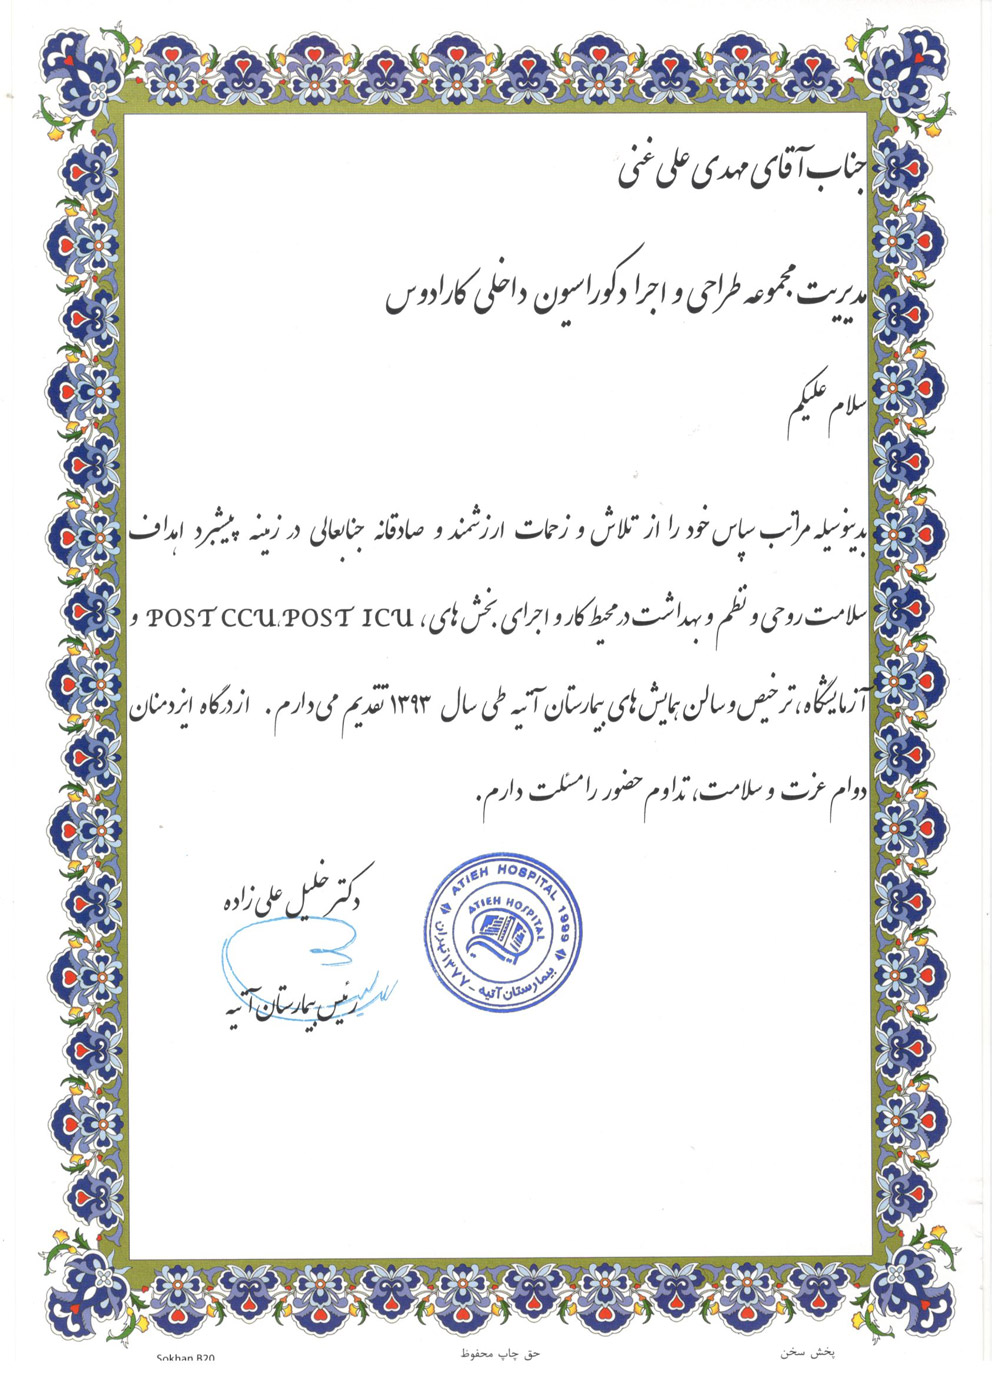 جناب آقای مهدی علی غنی
مدیریت مجموعه طراحی و اجرا دکوراسیون داخلی کارادوس
سلام علیکم
بدینوسیله مراتب سپاس خود را از تلاش و زحمات ارزشمند و صادقانه جنابعالی در زمینه پیشبرد اهداف
سلامت روحی و نظم و بهداشت در محیط کار و اجرای بخش های، POST CCU,POST ICU و
آزمایشگاه، ترخیص و سالن همایش های بیمارستان آتیه طی سال ۱۳۹۳ تقدیم می دارم. از درگاه ایزدمنان
دوام عزت و سلامت، تداوم حضور را مسئلت دارم.
دکتر خلیل علی زاده
رئیس بیمارستان آتیه
ATIEH HOSPITAL 1999
ATIEH HOSPITAL
بیمارستان آتیه - ۱۳۷۷ تهران
پخش سخن
حق چاپ محفوظ
Sokhan B20